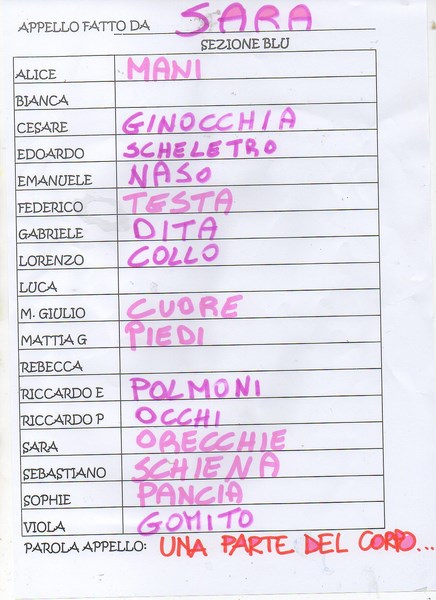 APPELLO FATTO DA SARA
SEZIONE BLU
ALICE MANI
BIANCA
CESARE GINOCCHIA
EDOARDO SCHELETRO
EMANUELE NASO
FEDERICO TESTA
GABRIELE DITA
LORENZO COLLO
LUCA
M. GIULIO CUORE
MATTIA G PIEDI
REBECCA
RICCARDO E POLMONI
RICCARDO P OCCHI
SARA ORECCHIE
SEBASTIANO SCHIENA
SOPHIE PANCIA
VIOLA GOMITO
PAROLA APPELLO: UNA PARTE DEL CORPO...